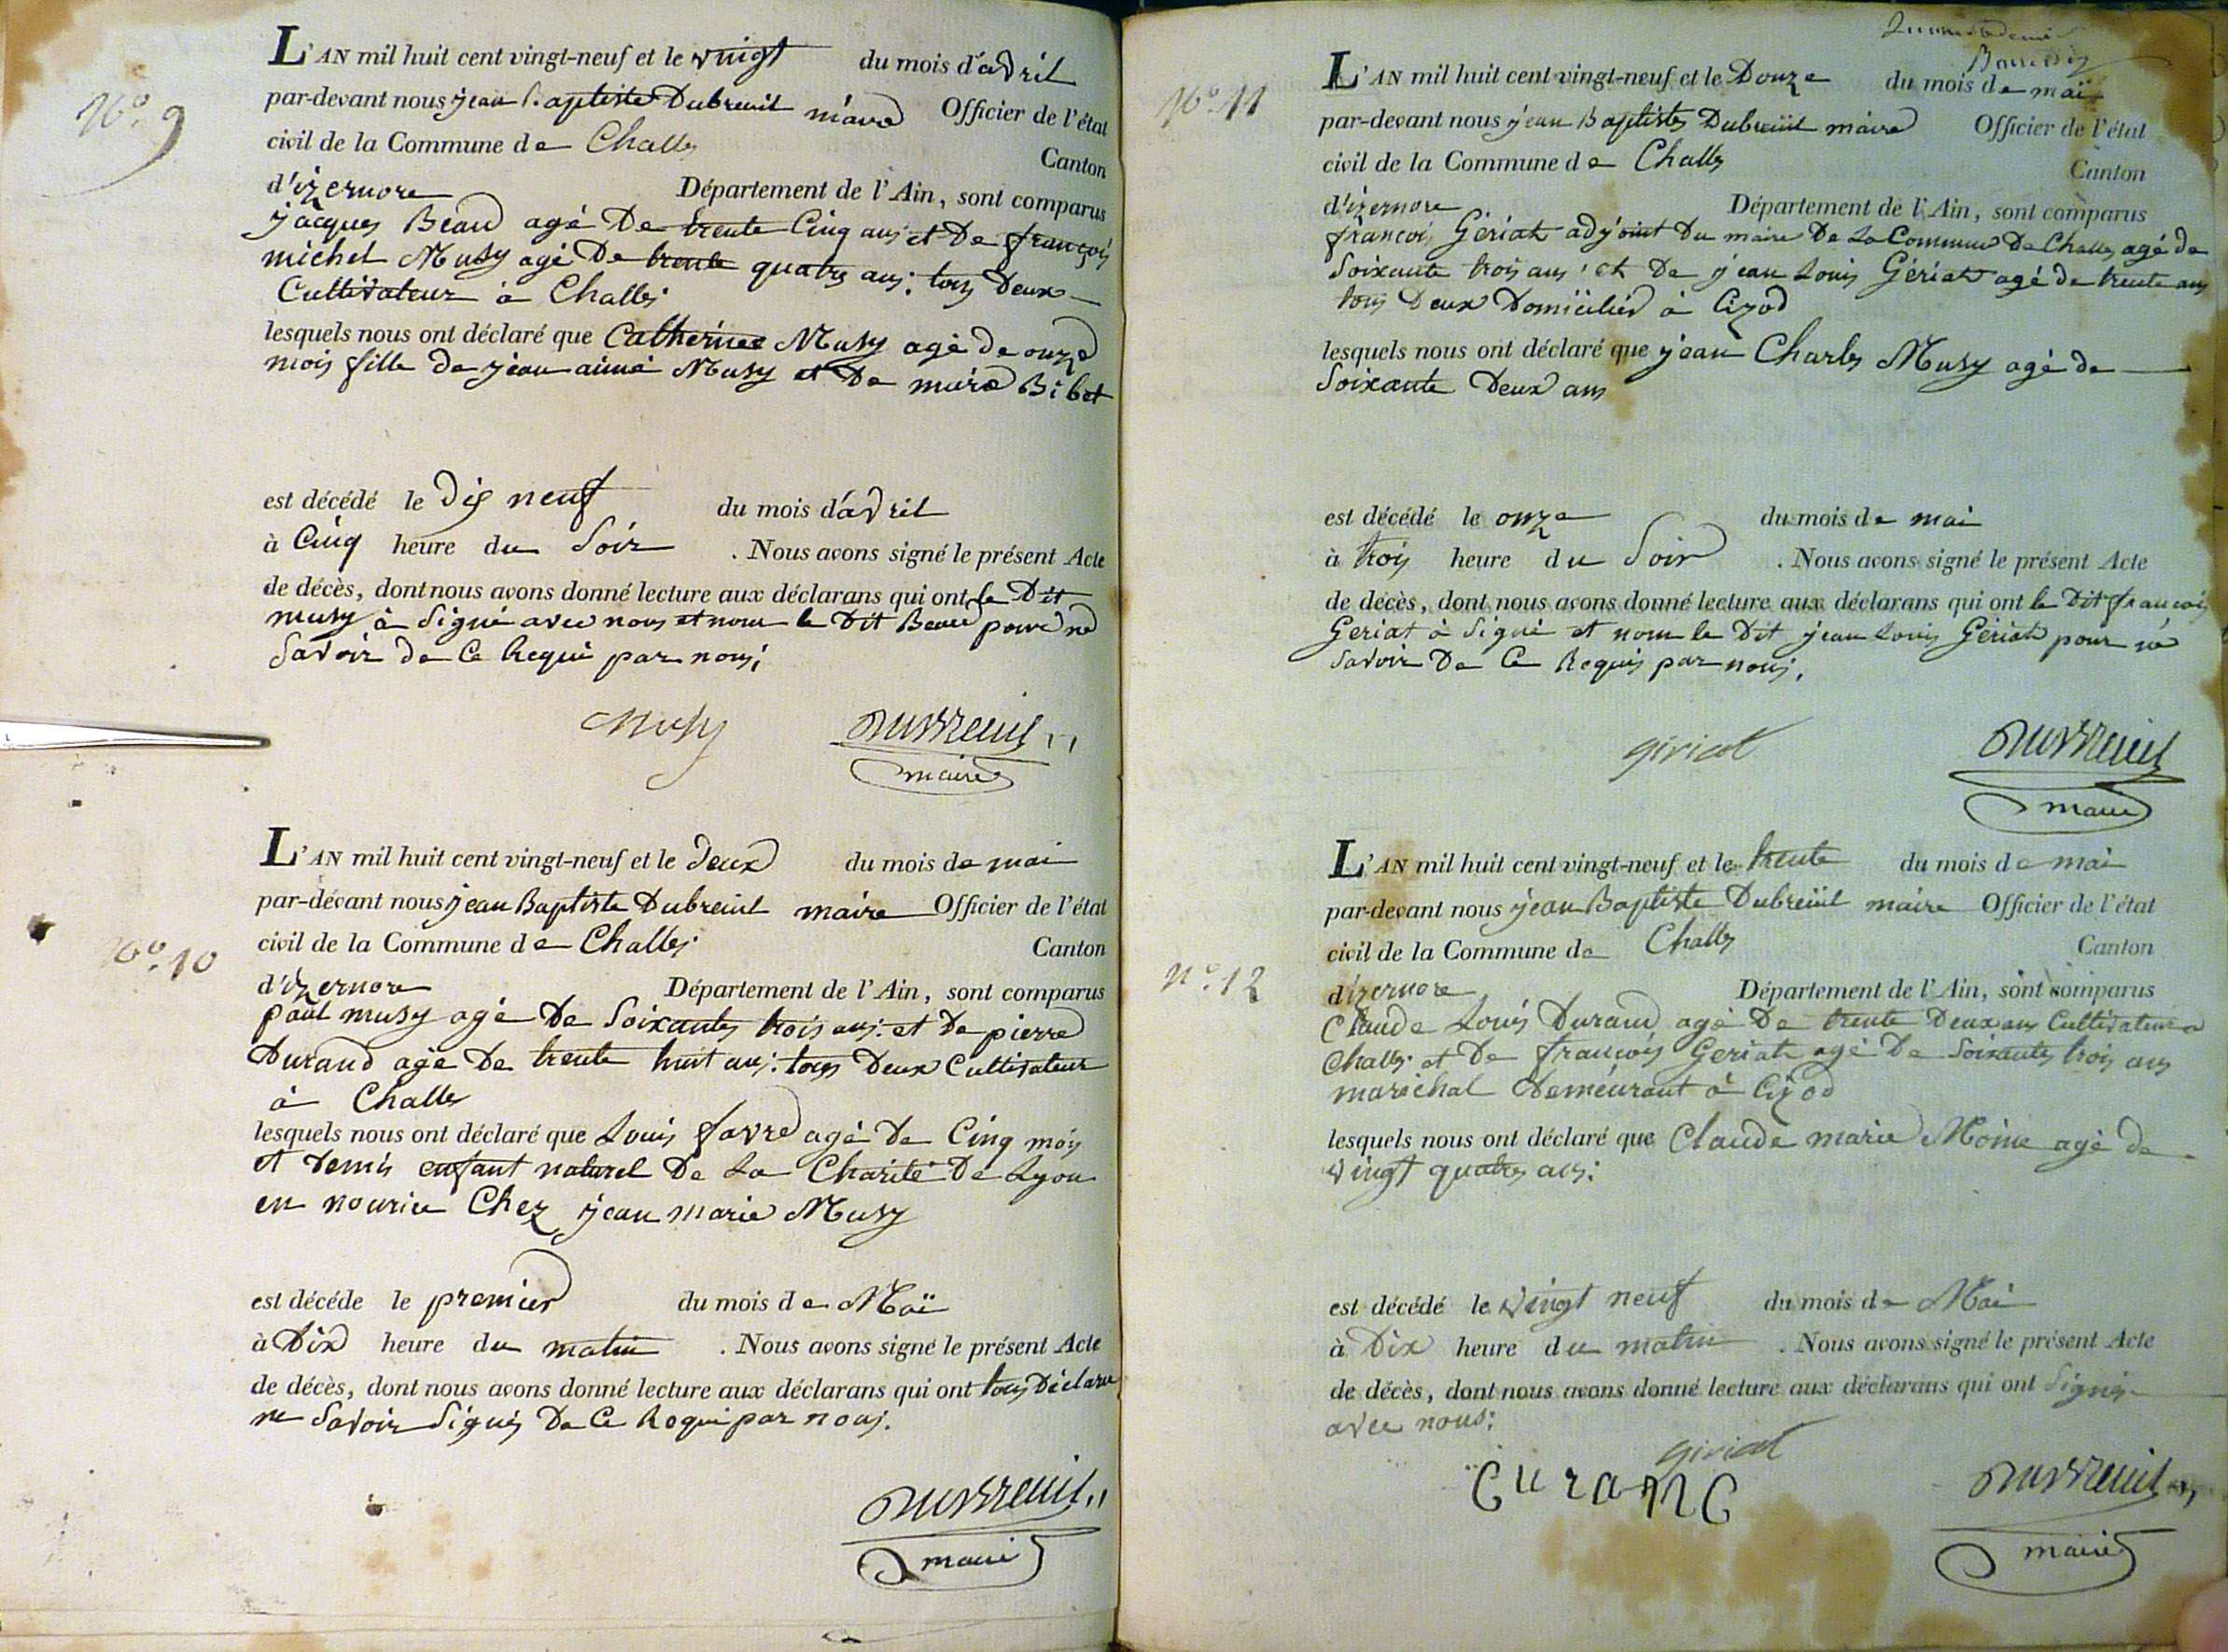 N.o 9
L'AN mil huit cent vingt-neuf et le vingt du mois d'avril
par-devant nous jean Baptiste Dubreuil maire Officier de l'état
civil de la Commune de Challes
Canton
d'izernore Département de l'Ain, sont comparus
jacques Beaud agé De trente Cinq ans et De françois
michel Musy agé De trente quatre ans; tous Deux
Cultivateur à Challes
lesquels nous ont déclaré que Catherinee Musy agé de onze
mois fille de jean aimé Musy et De marie Bibet
est décédé le dix neuf du mois d'avril
à Cinq heure du Soir . Nous avons signé le présent Acte
de décès, dont nous avons donné lecture aux déclarans qui ont le Dit
musy à Signé avec nous et nom le Dit Beau pour ne
Savoir de Ce Requi par nous;
Musy Dubreuil
maire
N.o 10
L'AN mil huit cent vingt-neuf et le deux du mois de mai
par-devant nous jean Baptiste Dubreuil maire Officier de l'état
civil de la Commune de Challes Canton
d'izernore Département de l'Ain, sont comparus
paul musy agé De Soixantes trois ans: et De pierre
Durand agé De trente huit ans: tous Deux Cultivateur
à Challes
lesquels nous ont déclaré que Louis favre agé De Cinq mois
et demis enfant naturel De La Charité De Lyon
en nourice Chez jean marie Musy
est décédé le premier du mois de Maï
à Dix heure du matin . Nous avons signé le présent Acte
de décès, dont nous avons donné lecture aux déclarans qui ont tous Déclaré
ne Savoir Signés De Ce Requi par nous.
Dubreuil
maire
N.o 11
L'AN mil huit cent vingt-neuf et le Douze du mois de mai
par-devant nous jean Baptistes Dubreüil maire Officier de l'état
civil de la Commune de Challes
Canton
d'izernore Département de l'Ain, sont comparus
françois Gériat adjoint Du maire De La Commune De Challes agé de
Soixante trois ans; et De jean Louis Gériat agé de trente ans
tous Deux Domicilié à Cizod
lesquels nous ont déclaré que jean Charles Musy agé de
Soixante Deux ans
est décédé le onze du mois de mai
à trois heure du Soir . Nous avons signé le présent Acte
de décès, dont nous avons donné lecture aux déclarans qui ont le Dit françois
Geriat à Signé et nom le Dit jean Louis Gériat pour né
Savoir De Ce Requis par nous.
giriat Dubreuil
maire
N.o 12
L'AN mil huit cent vingt-neuf et le trente du mois de mai
par-devant nous jean Baptiste Dubreüil maire Officier de l'état
civil de la Commune de Challes Canton
d'izernore Département de l'Ain, sont comparus
Claude Louis Durand agé De trente Deux ans Cultivateur a
Challes et De françois Geriat agé De Soixantes trois ans
maréchal demeurant à Cizod
lesquels nous ont déclaré que Claude marie Moine agé de
vingt quatres ans:
est décédé le vingt neuf du mois de Mai
à Dix heure du matin . Nous avons signé le présent Acte
de décès, dont nous avons donné lecture aux déclarans qui ont Signés
avec nous:
giriat
Dubreuil
maire